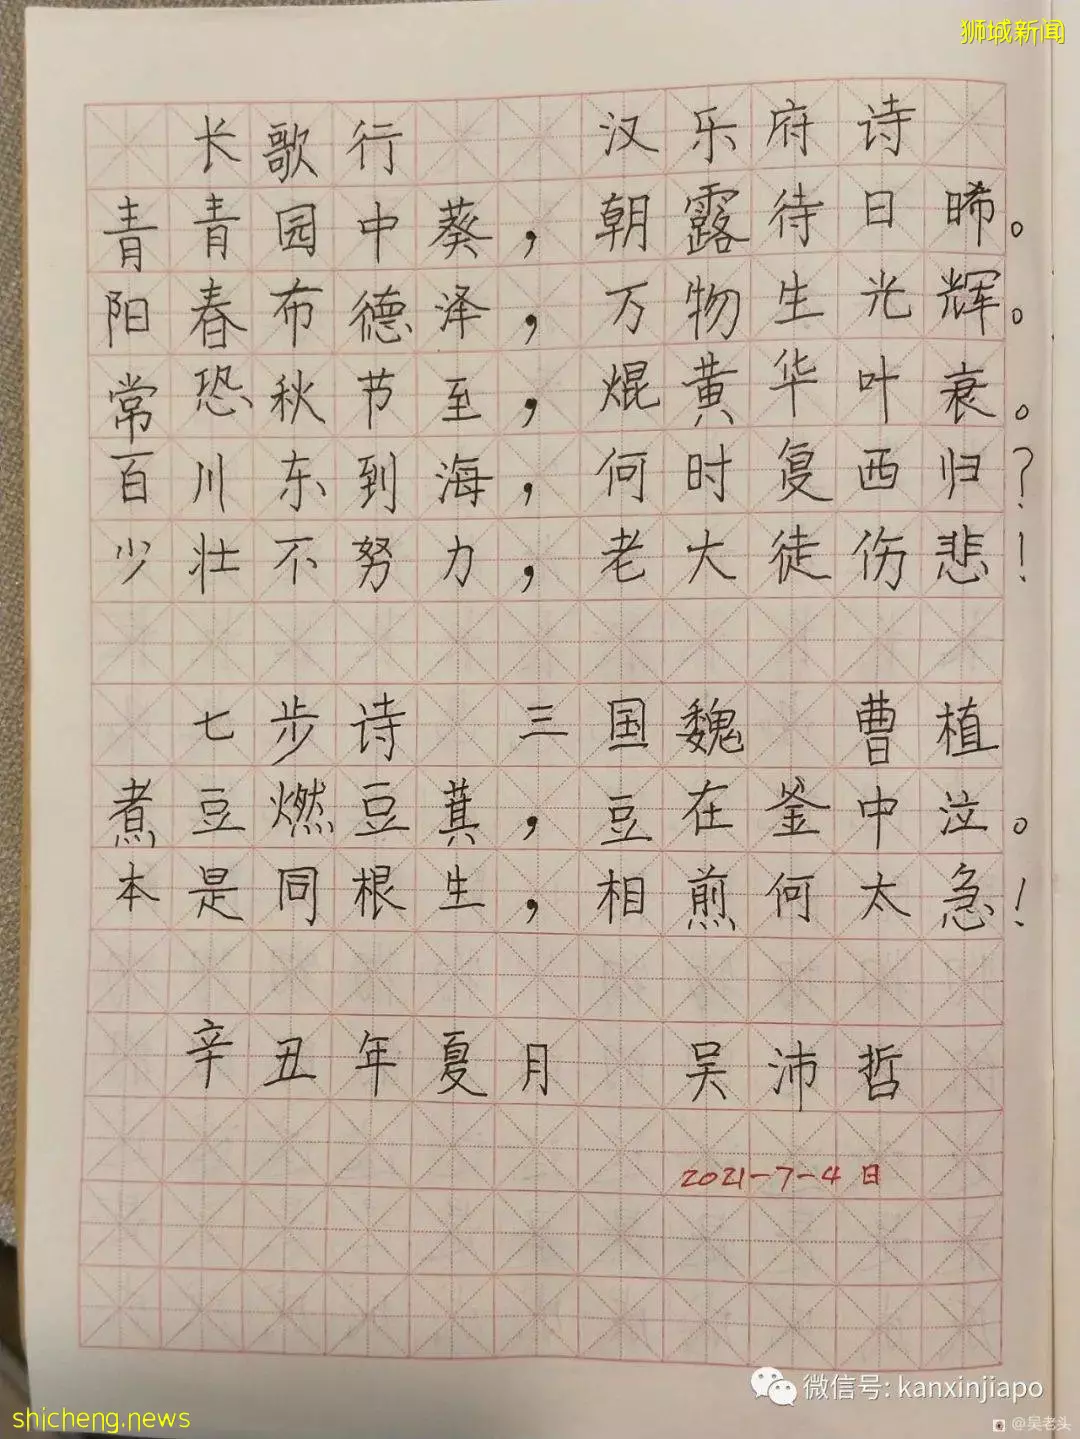 狮城新闻
长歌行 汉乐府诗
青青园中葵，朝露待日晞。
阳春布德泽，万物生光辉。
常恐秋节至，焜黄华叶衰。
百川东到海，何时复西归？
少壮不努力，老大徒伤悲！
七步诗 三国魏 曹植
煮豆燃豆萁，豆在釜中泣。
本是同根生，相煎何太急！
辛丑年夏月 吴沛哲
2021-7-4日
微信号: kanxinjiapo
shicheng.news
@吴老头